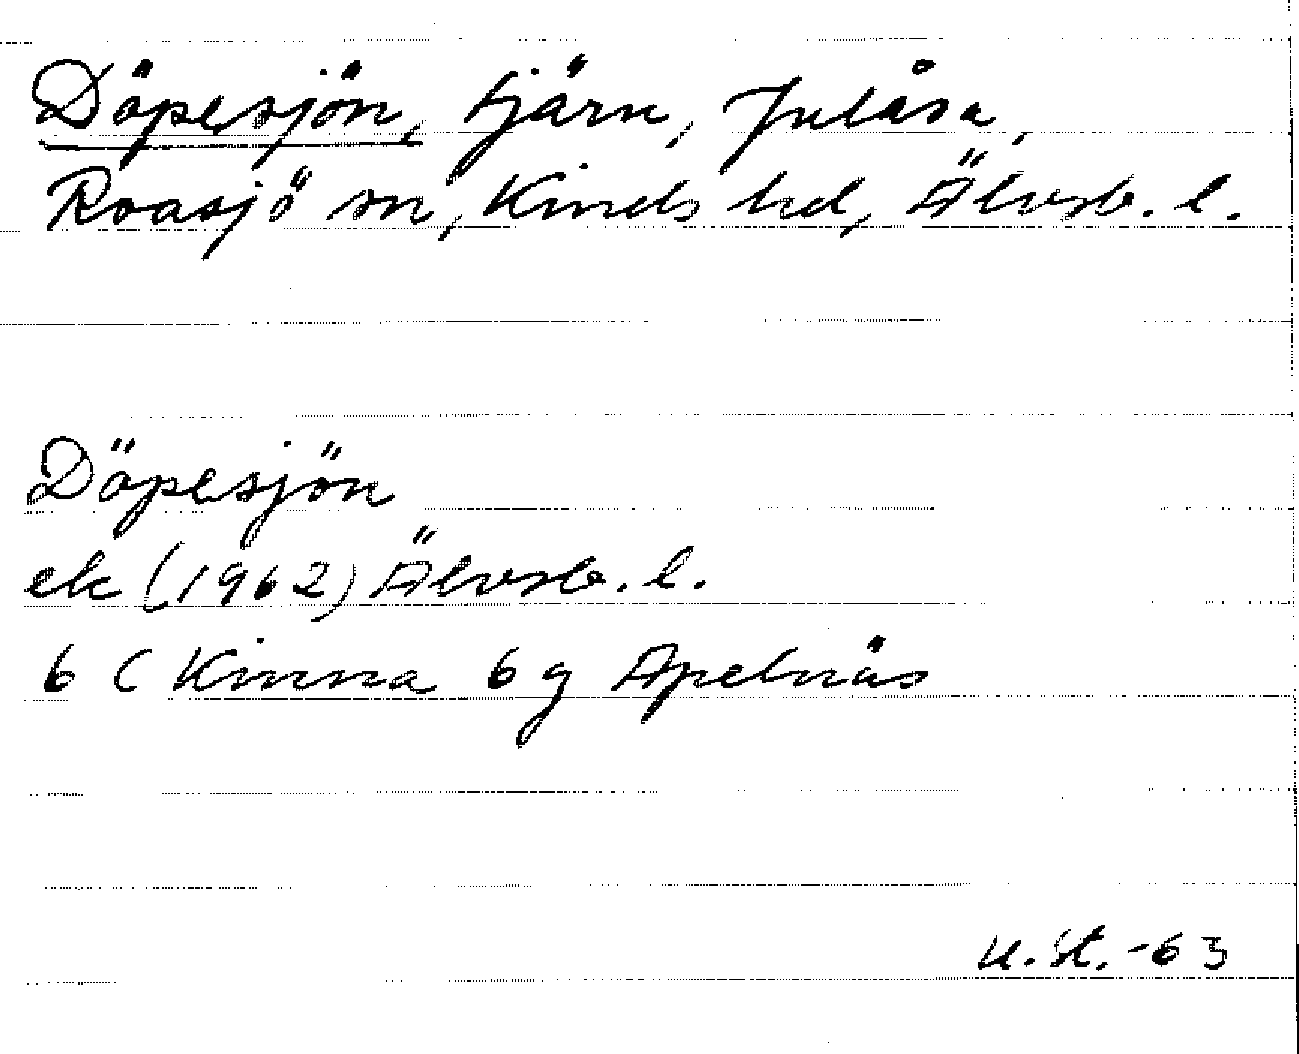 Döpesjön, tjärn, Julåsa,
Roasjö sn, Kinds hd, Älvsb. l.
Döpesjön
ek (1962) Älvsb. l.
6 C Kinna 6 g Apelnäs
u. st. -63